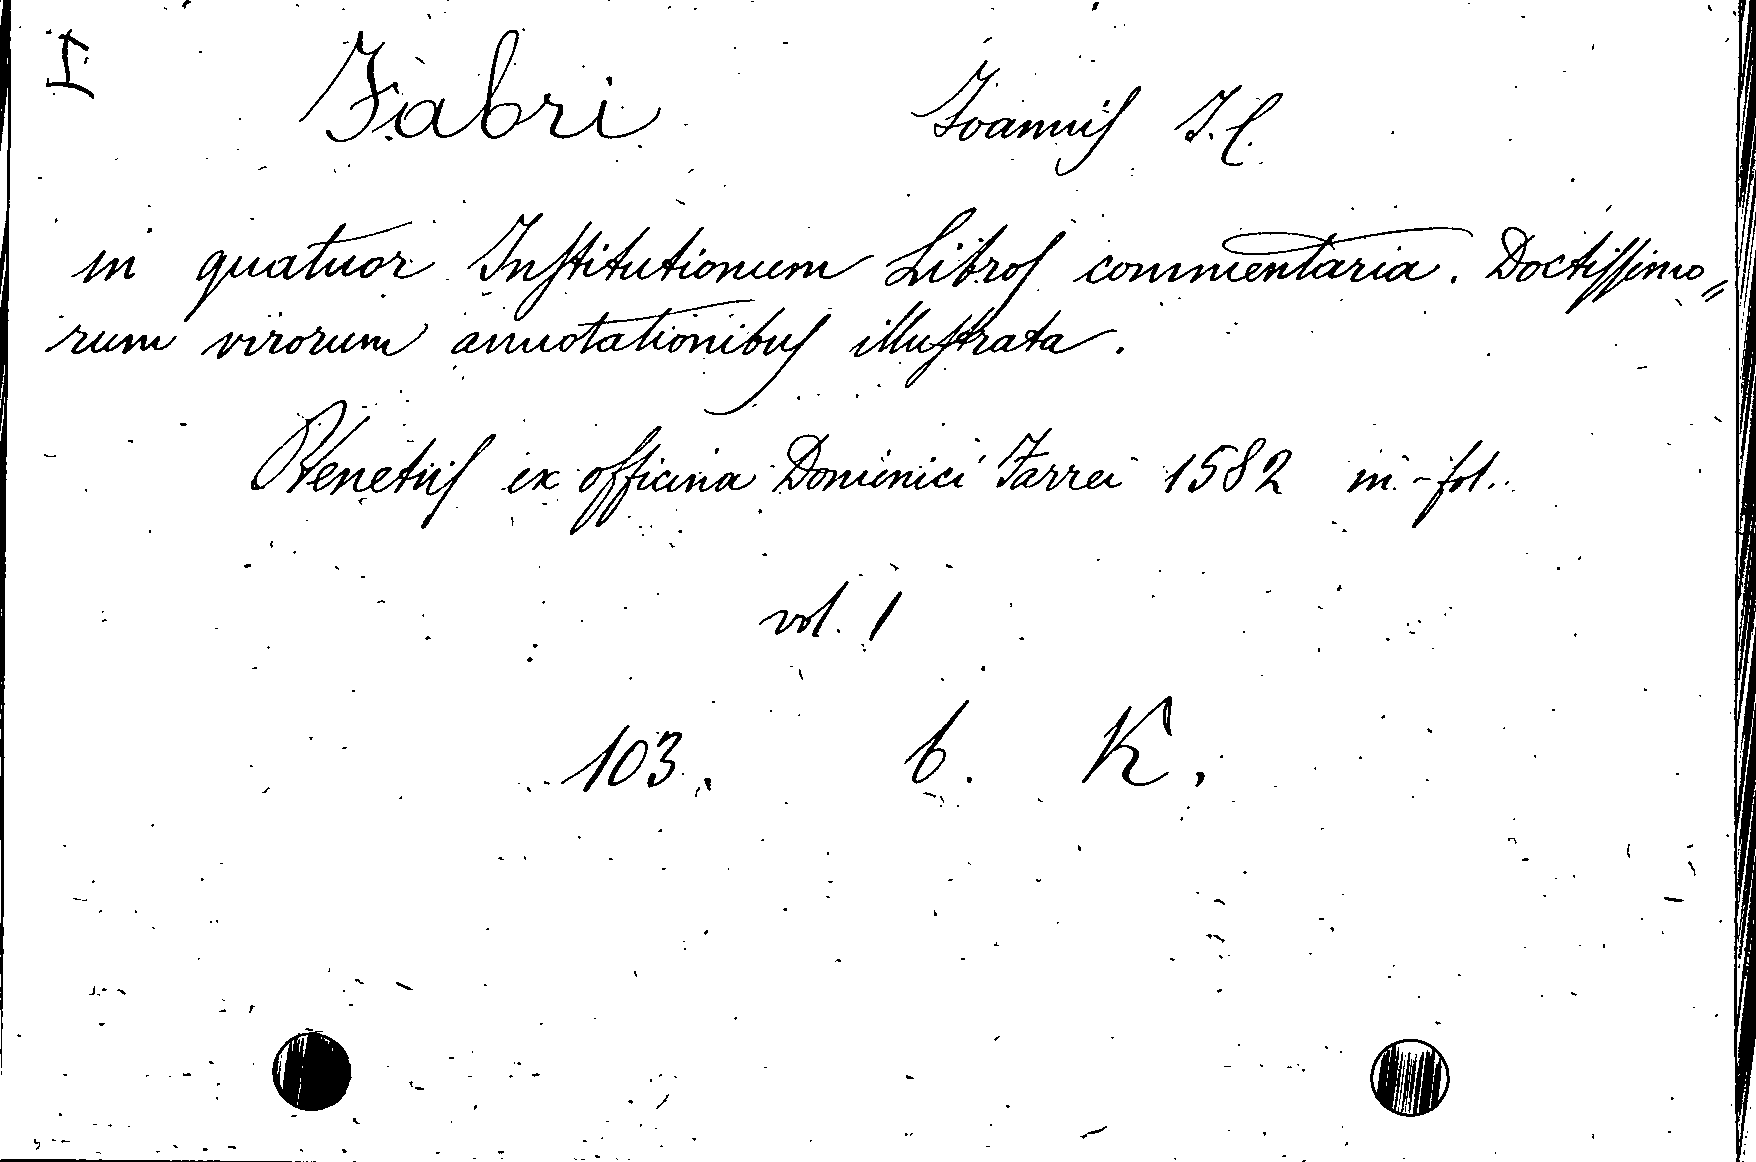 I
Fabri Ioannis I. C.
in quatuor Institutionum Libros commentaria. Doctissimo„
rum virorum annotationibus illustrata.
Venetiis ex officina Dominici Farrei 1582 in-fol.
vol. 1
103. b. K.